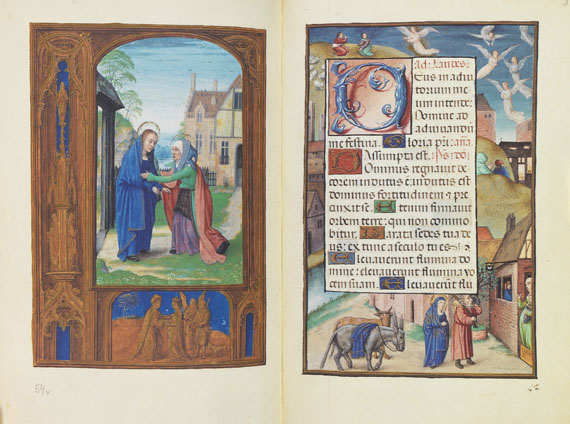 ad: Laudes:
Deus in adiu
torium me
um intende:
Domine ad
adiuvandū
me festina. Gloria pr̄i: aña.
Assumpta est. Ps: dō:
Ominus regnavit de
corem indutus ē: indutus est
dominus fortitudinem ⁊ pre
cinxit se. Etenim firmavit
orbem terre: qui non commo
bitur. Parata sedes tua de
us: ex tunc a seculo tu es
Elevaverunt flumina do
mine: elevaverunt flumina vo
cem suam. Elevaverūt flu
54v